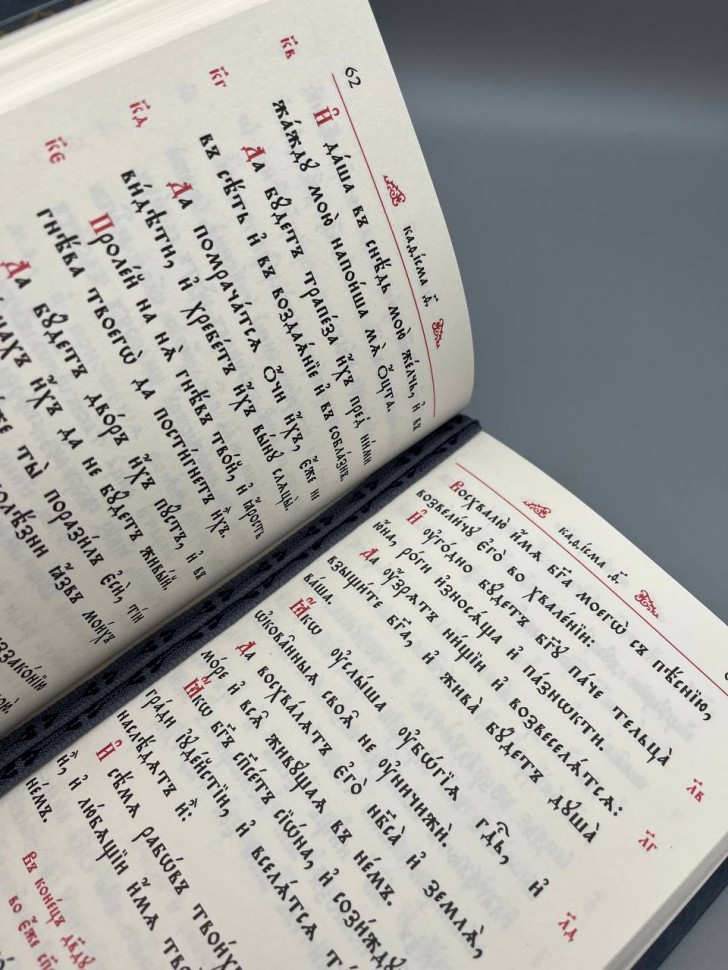 62
каѳі́сма ѳ҃.
И҆ да́ша въ снѣ́дь мою̀ же́лчь, и҆ въ
жа́ждꙋ мою̀ напои́ша мѧ̀ ѻ҆́цта.
к҃в
Да бꙋ́детъ трапе́за и҆́хъ пред̾ ни́ми
въ сѣ́ть и҆ въ воздаѧ́нїе и҆ въ собла́знъ.
к҃г
Да помрача́тсѧ ѻ҆́чи и҆́хъ, є҆́же не
ви́дѣти, и҆ хребе́тъ и҆́хъ вы́нꙋ слѧцы̀.
к҃д
Проле́й на нѧ̀ гнѣ́въ тво́й, и҆ ꙗ҆́рость
гнѣ́ва твоегѡ̀ да пости́гнетъ и҆̀хъ.
к҃є
Да бꙋ́детъ дво́ръ и҆́хъ пꙋ́стъ, и҆ въ
и҆́хъ да не бꙋ́детъ живы́й.
ты̀ порази́лъ є҆сѝ, ті́и
ꙗ҆́звъ мои́хъ
каѳі́сма ѳ҃.
Восхвалю̀ и҆́мѧ бг҃а моегѡ̀ съ пѣ́снїю,
возвели́чꙋ є҆го̀ во хвале́нїи:
л҃в
И҆ ᲂу҆го́дно бꙋ́детъ бг҃ꙋ па́че тельца̀
ю҆́на, ро́ги и҆знося́ща и҆ па́знѡкти.
л҃г
Да ᲂу҆́зрѧтъ ни́щїи и҆ возвеселѧ́тсѧ:
взыщи́те бг҃а, и҆ жива̀ бꙋ́детъ дꙋша̀
ва́ша.
л҃д
Ꙗ҆́кѡ ᲂу҆слы́ша ᲂу҆бѡ́гїѧ гдⷭ҇ь, и҆
ѡ҆кова̑нныѧ своѧ̑ не ᲂу҆ничижѝ.
Да восхва́лѧтъ є҆го̀ нб҃са̀ и҆ землѧ̀,
мо́ре и҆ всѧ̑ живꙋ́щаѧ въ не́мъ.
Ꙗ҆́кѡ бг҃ъ сп҃се́тъ сїѡ́на, и҆ сози́ждꙋ
гра́ди і҆ꙋде́йстїи, и҆ вселѧ́тсѧ
наслѣ́дѧтъ и҆̀:
И҆ сѣ́мѧ рабѡ́въ твои́хъ
и҆̀, и҆ лю́бѧщїи и҆́мѧ
не́мъ.
Въ коне́цъ дв҃дꙋ
во є҆́же